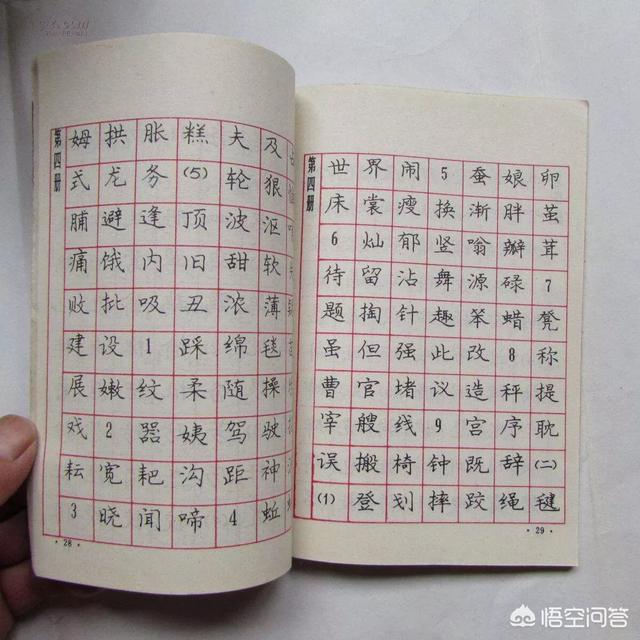 第四册
姆 拱 胀 糕 夫 及
式 龙 务 (5) 轮 狠
脯 避 逢 顶 波 沤
痛 饿 内 旧 甜 软
败 批 吸 丑 浓 薄
建 设 1 踩 绵 毯
展 嫩 纹 柔 随 操
戏 2 器 姨 驾 驶
耘 宽 耙 沟 距 神
3 晓 闻 啼 4 蚯
·28·
第四册
世 界 闹 5 蚕 娘 卵
床 裳 瘦 换 渐 胖 茧
6 灿 郁 竖 嗡 瓣 茸
待 留 沾 舞 源 碌 7
题 掏 针 趣 笨 蜡 凳
虽 但 强 此 改 8 称
曹 官 堵 议 造 秤 提
宰 艘 线 9 宫 序 耽
误 搬 椅 钟 既 辞 (二)
(1) 登 划 摔 跤 绳 毽
·29·
悟空问答